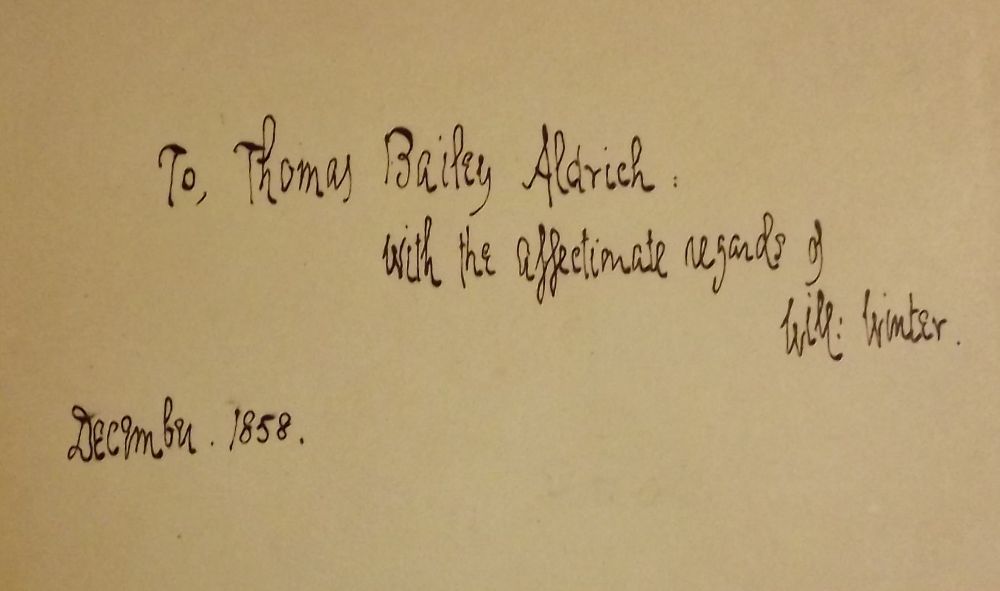 To, Thomas Bailey Aldrich:
with the affectionate regards of
Will: Winter.
December. 1858.